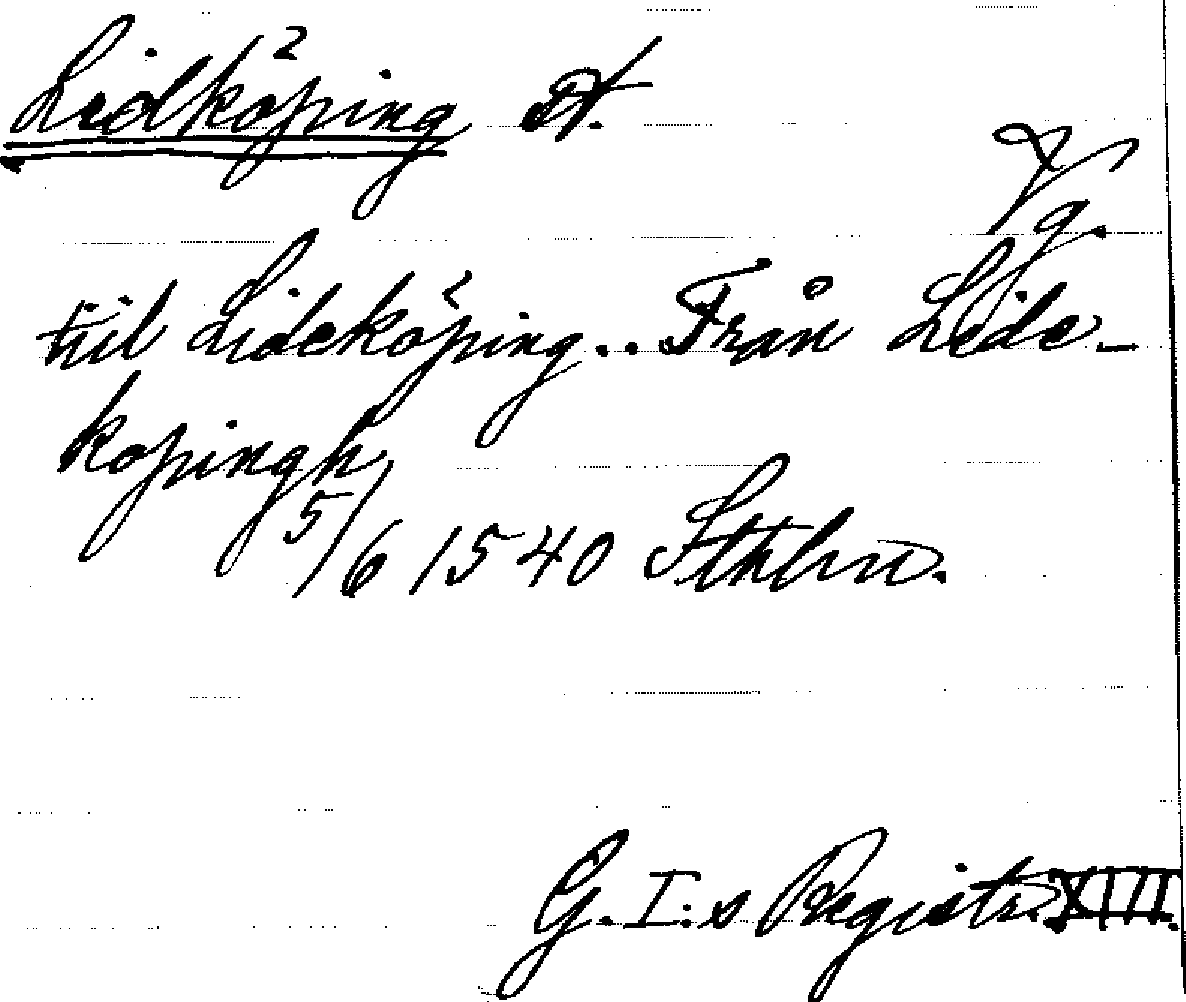 Lidköping St.
Vg
till Lideköping.. Från Lide-
kopingh
5/6 1540 Sthlm.
G. I:s Registr. XIII.